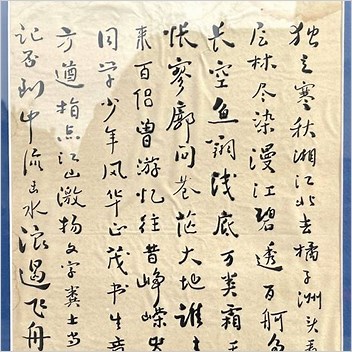 独立寒秋湘江北去橘子洲头看
层林尽染漫江碧透百舸争
长空鱼翔浅底万类霜天
怅寥廓问苍茫大地谁主
来百侣曾游忆往昔峥嵘岁
同学少年风华正茂书生意
方遒指点江山激扬文字粪土当
记否到中流击水浪遏飞舟